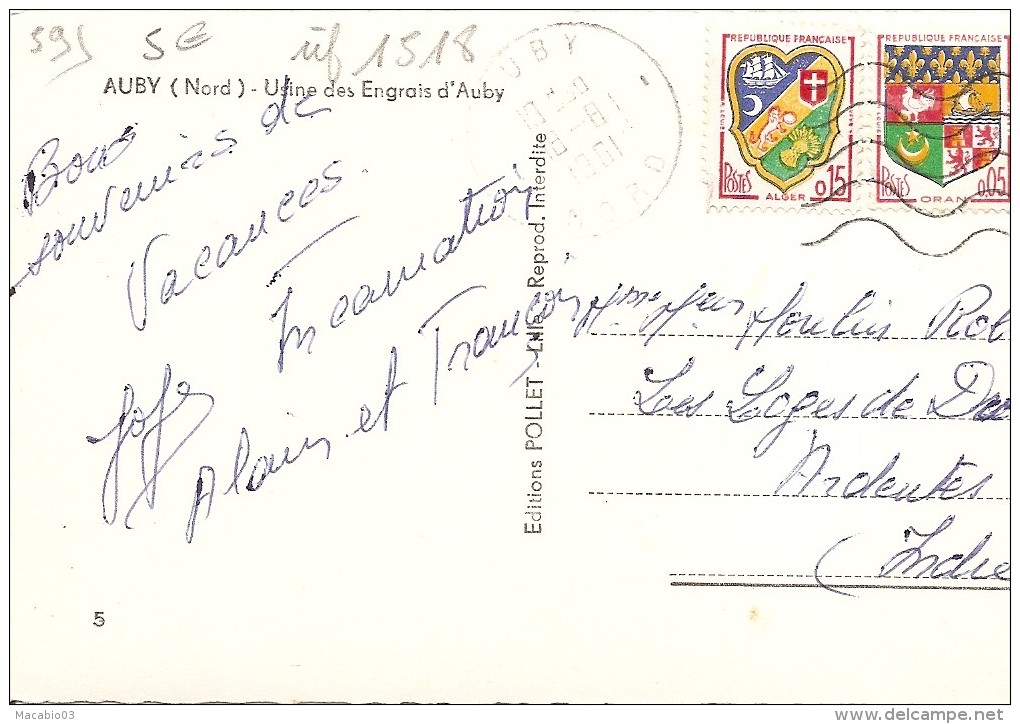 595 5€ réf 1518
AUBY (Nord) - Usine des Engrais d'Auby
Bons
souvenirs de
Vacances.
Incarnation
Alain et François
Editions POLLET - Lille Reprod. Interdite
AUBY
1961
NORD
REPUBLIQUE FRANÇAISE
POSTES 0,15
ALGER
REPUBLIQUE FRANÇAISE
POSTES 0,05
ORAN
Moulin Rol
Les Loges de
Ardentes
(Indre
5
Macabio03
delcampe.net